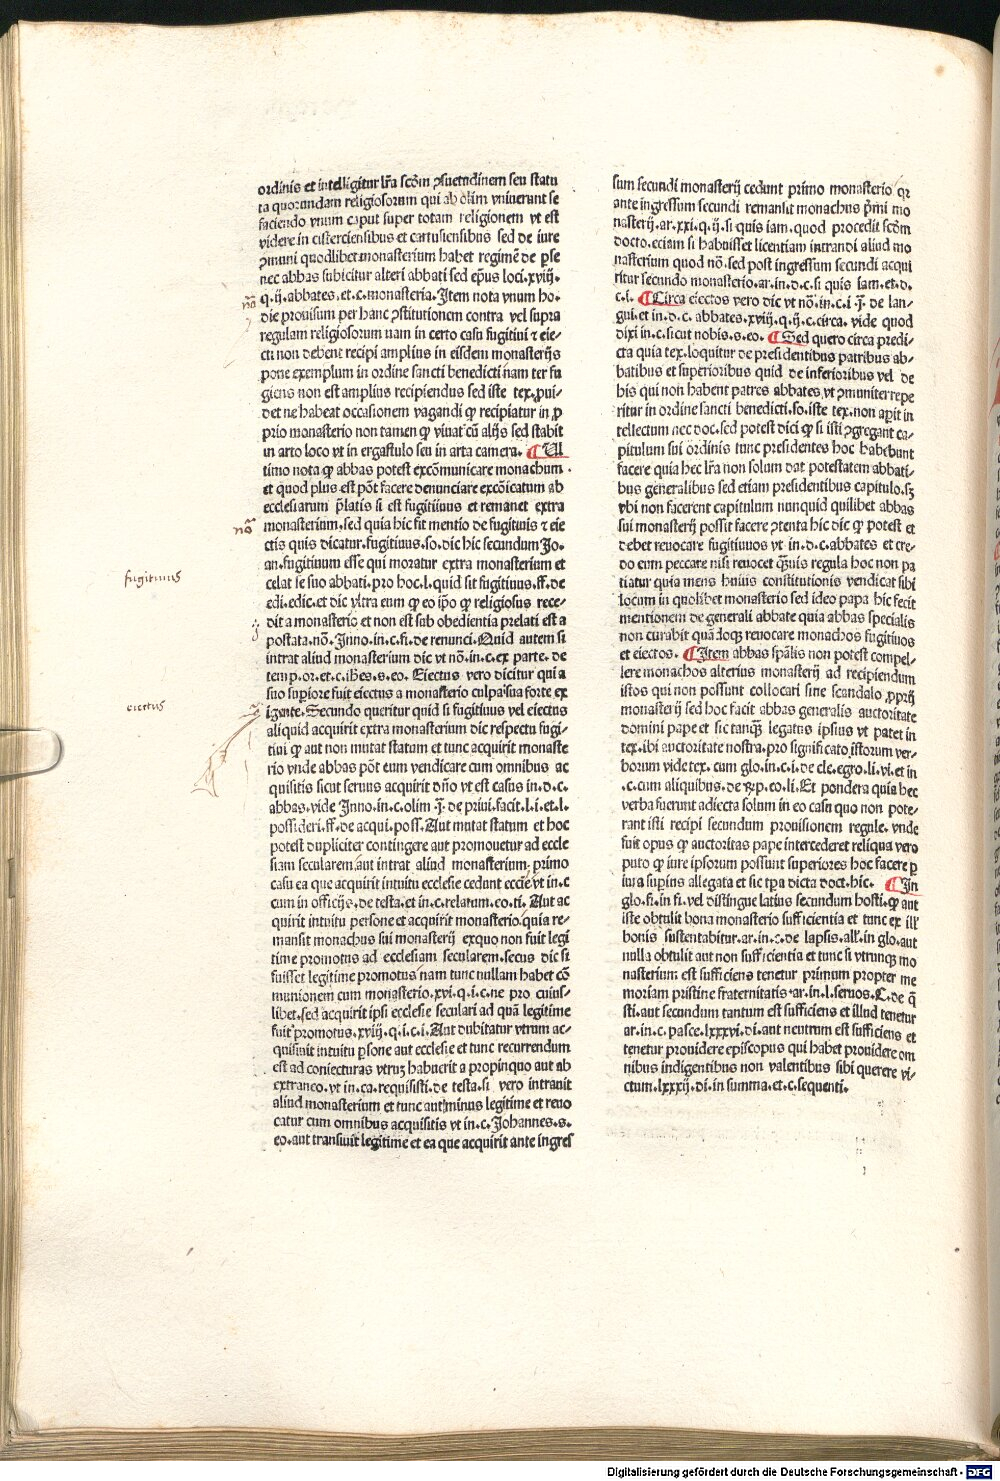 ordinis et intelligitur lr̃a scd̃m ꝯsuetudinem seu statu
ta quorundam religiosorum qui ab olim vniuerunt se
faciendo vnum caput super totam religionem vt est
videre in cisterciensibus et cartusiensibus sed de iure
ꝯmuni quodlibet monasterium habet regimẽ de ꝑ se
nec abbas subicitur alteri abbati sed ep̃us loci.xviij.
q.ij.abbates.et.c.monasteria. Item nota vnum ho-
die prouisum per hanc ꝯstitutionem contra vel supra
regulam religiosorum nam in certo casu fugitiui ⁊ eie-
cti non debent recipi amplius in eisdem monasterijs
pone exemplum in ordine sancti benedicti nam ter fu
giens non est amplius recipiendus sed iste tex.pui-
det ne habeat occasionem vagandi ꝙ recipiatur in ꝓ
prio monasterio non tamen ꝙ viuat cũ alijs sed stabit
in arto loco vt in ergastulo seu in arta camera. ¶ Ul
timo nota ꝙ abbas potest excõmunicare monachum.
et quod plus est põt facere denunciare excõicatum ab
ecclesiarum p̃latis si est fugitiuus et remanet extra
monasterium.sed quia hic fit mentio de fugitiuis ⁊ eie
ctis quis dicatur.fugitiuus.so.dic hic secundum Jo-
an.fugitiuum esse qui moratur extra monasterium et
celat se suo abbati.pro hoc.l.quid sit fugitiuus.ff.de
edi.edic.et dic vltra eum ꝙ eo ip̃o ꝙ religiosus rece-
dit a monasterio et non est sub obedientia prelati est a
postata.nõ.Inno.in.c.fi.de renunci. Quid autem si
intrat aliud monasterium dic vt nõ.in.c.ex parte.de
temp.or.et.c.ihẽs.s.eo. Eiectus vero dicitur qui a
suo sup̃iore fuit eiectus a monasterio culpa sua forte ex
igente. Secundo queritur quid si fugitiuus vel eiectus
aliquid acquirit extra monasterium dic respectu fugi-
tiui ꝙ aut non mutat statum et tunc acquirit monaste
rio vnde abbas põt eum vendicare cum omnibus ac
quisitis sicut seruus acquirit dño vt est casus in.d.c.
abbas.vide Inno.in.c.olim .j̃. de priui.facit.l.i.et.l.
possideri.ff.de acqui.poss. Aut mutat statum et hoc
potest dupliciter contingere aut promouetur ad eccle
siam secularem aut intrat aliud monasterium. primo
casu ea que acquirit intuitu ecclesie cedunt eccẽie vt in.c
cum in officijs.de testa.et in.c.relatum.eo.ti. Aut ac
quirit intuitu persone et acquirit monasterio quia re-
mansit monachus sui monasterij exquo non fuit legi
time promotus ad ecclesiam secularem.secus dic si
fuisset legitime promotus nam tunc nullam habet cõ
munionem cum monasterio.xvi.q.i.c.ne pro cuius-
libet.sed acquirit ipsi ecclesie seculari ad quã legitime
fuit promotus.xviij.q.i.c.i. Aut dubitatur vtrum ac-
quisiuit intuitu ꝑsone aut ecclesie et tunc recurrendum
est ad coniecturas vtruꝫ habuerit a propinquo aut ab
extraneo.vt in.ca.requisisti.de testa.si vero intrauit
aliud monasterium et tunc aut minus legitime et reuo
catur cum omnibus acquisitis vt in.c.Johannes.s.
eo.aut transiuit legitime et ea que acquirit ante ingres
sum secundi monasterij cedunt primo monasterio qꝛ
ante ingressum secundi remansit monachus p̃mi mo
nasterij.ar.xxi.q.ij.si quis iam.quod procedit scd̃m
docto.eciam si habuisset licentiam intrandi aliud mo
nasterium quod nõ.sed post ingressum secundi acqui
ritur secundo monasterio.ar.in.d.c.si quis iam.et.d.
c.i. ¶ Circa eiectos vero dic vt nõ.in.c.i .j̃. de lan-
gui.et in.d.c.abbates.xviij.q.ij.c.circa.vide quod
dixi in.c.sicut nobis.s.eo. ¶ Sed quero circa predi-
cta quia tex.loquitur de presidentibus patribus ab-
batibus et superioribus quid de inferioribus vel de
his qui non habent patres abbates vt ꝯmuniter repe
ritur in ordine sancti benedicti.so.iste tex.non apit in
tellectum nec doc.sed potest dici ꝙ si isti ꝯgregant ca-
pitulum sui ordinis tunc presidentes hoc habebunt
facere quia hec lr̃a non solum dat potestatem abbati-
bus generalibus sed etiam presidentibus capitulo.sꝫ
vbi non facerent capitulum nunquid quilibet abbas
sui monasterij possit facere ꝯtenta hic dic ꝙ potest et
debet reuocare fugitiuuos vt in.d.c.abbates et cre-
do eum peccare nisi reuocet q̃uis regula hoc non pa
tiatur quia mens huius constitutionis vendicat sibi
locum in quolibet monasterio sed ideo papa hic fecit
mentionem de generali abbate quia abbas specialis
non curabit quãdoqꝫ reuocare monachos fugitiuos
et eiectos. ¶ Item abbas sp̃alis non potest compel-
lere monachos alterius monasterij ad recipiendum
istos qui non possunt collocari sine scandalo ꝓprij
monasterij sed hoc facit abbas generalis auctoritate
domini pape et sic tanqꝫ legatus ipsius vt patet in
tex.ibi auctoritate nostra.pro significato istorum ver-
borum vide tex. cum glo.in.c.i.de cle.egro.li.vi.et in
.c.cum aliquibus.de rep.eo.li.Et pondera quia hec
verba fuerunt adiecta solum in eo casu quo non pote-
rant isti recipi secundum prouisionem regule.vnde
fuit opus ꝙ auctoritas pape intercederet reliqua vero
puto ꝙ iure ipsorum possunt superiores hoc facere ꝑ
iura supius allegata et sic tp̃a dicta doct.hic. ¶ In
glo.fi.in fi.vel distingue latius secundum hosti.ꝙ aut
iste obtulit bona monasterio sufficientia et tunc ex ill'
bonis sustentabitur.ar.in.c.de lapsis.all'.in glo.aut
nulla obtulit aut non sufficientia et tunc si vtrunqꝫ mo
nasterium est sufficiens tenetur primum propter me
moriam pristine fraternitatis.ar.in.l.seruos.C.de q̃
sti.aut secundum tantum est sufficiens et illud tenetur
ar.in.c.pasce.lxxxvi.di.aut neutrum est sufficiens et
tenetur prouidere episcopus qui habet prouidere om
nibus indigentibus non valentibus sibi querere vi-
ctum.lxxxij.di.in summa.et.c.sequenti.
nõ
nõ
fugitiuus
eiectus
Digitalisierung gefördert durch die Deutsche Forschungsgemeinschaft - DFG